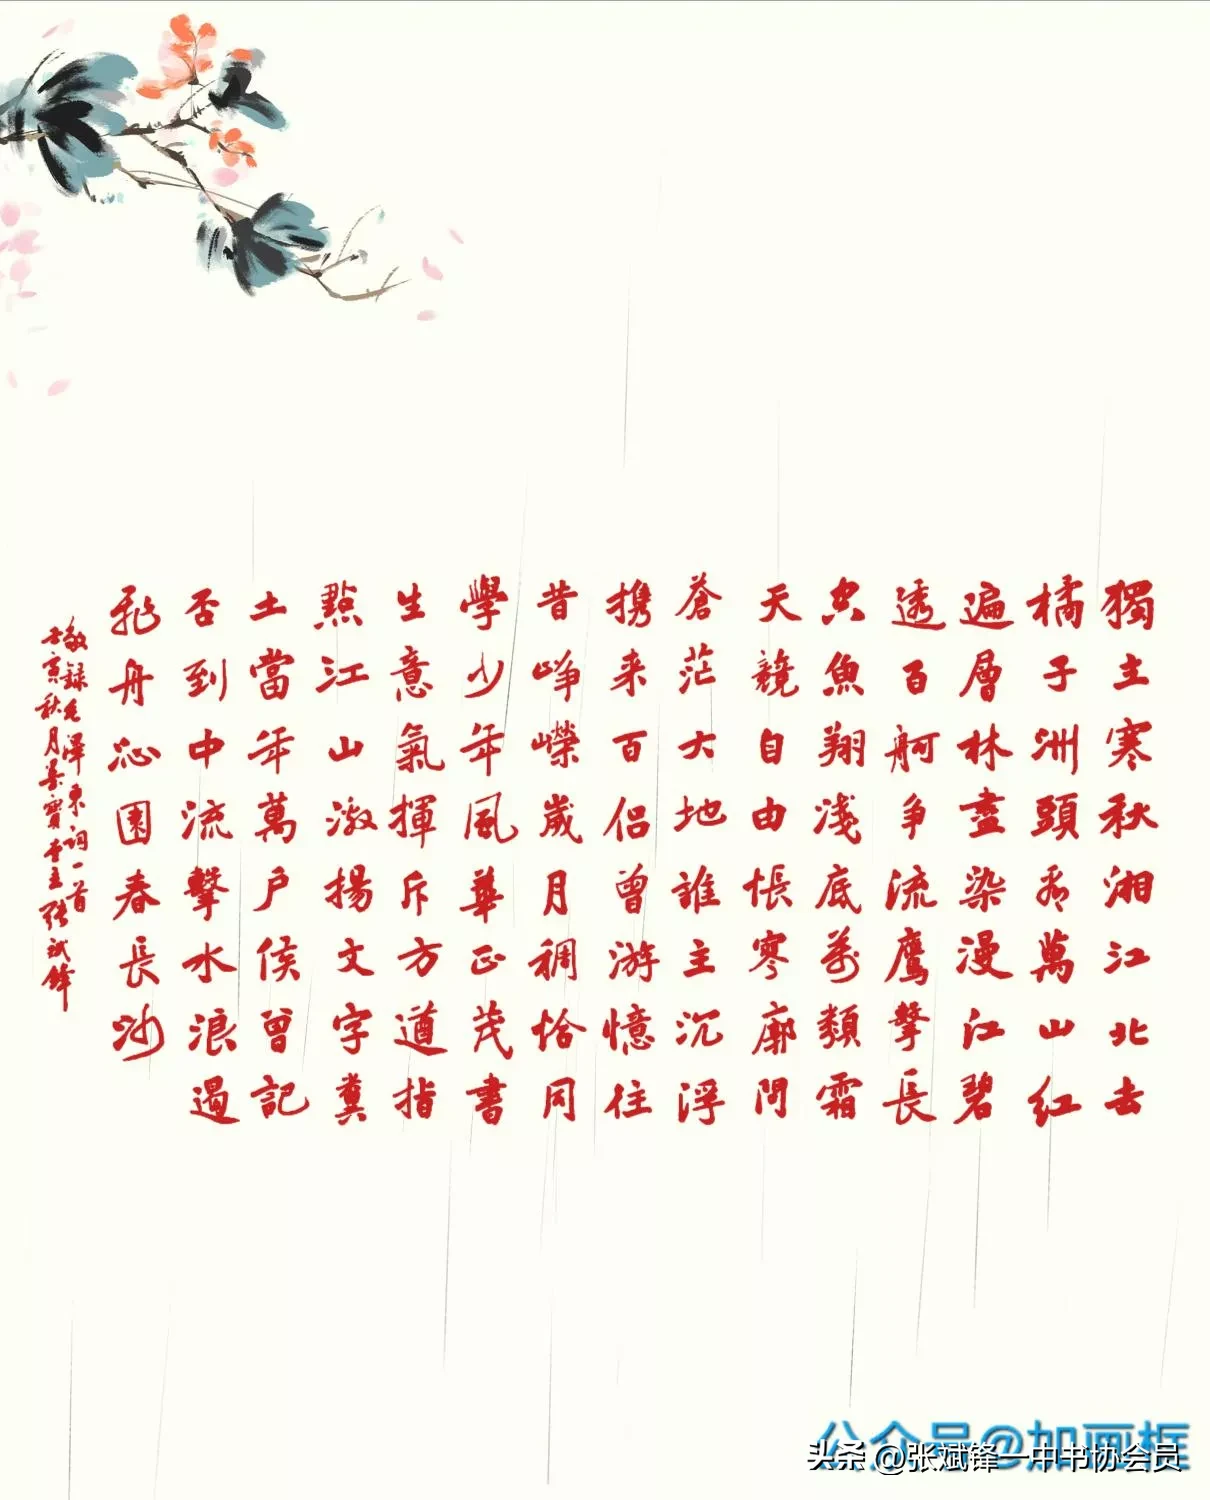 獨立寒秋湘江北去
橘子洲頭看萬山紅
遍層林盡染漫江碧
透百舸争流鷹擊長
空魚翔淺底萬類霜
天競自由悵寥廓問
蒼茫大地誰主沉浮
携来百侣曾游憶往
昔峥嶸歲月稠恰同
學少年風華正茂書
生意氣揮斥方遒指
點江山激揚文字糞
土當年萬户侯曾記
否到中流擊水浪遏
飛舟沁園春長沙
敬録毛澤東詞一首
壬寅秋月寶齋主張斌鋒
公众号@加画框
头条 @张斌锋一中书协会员